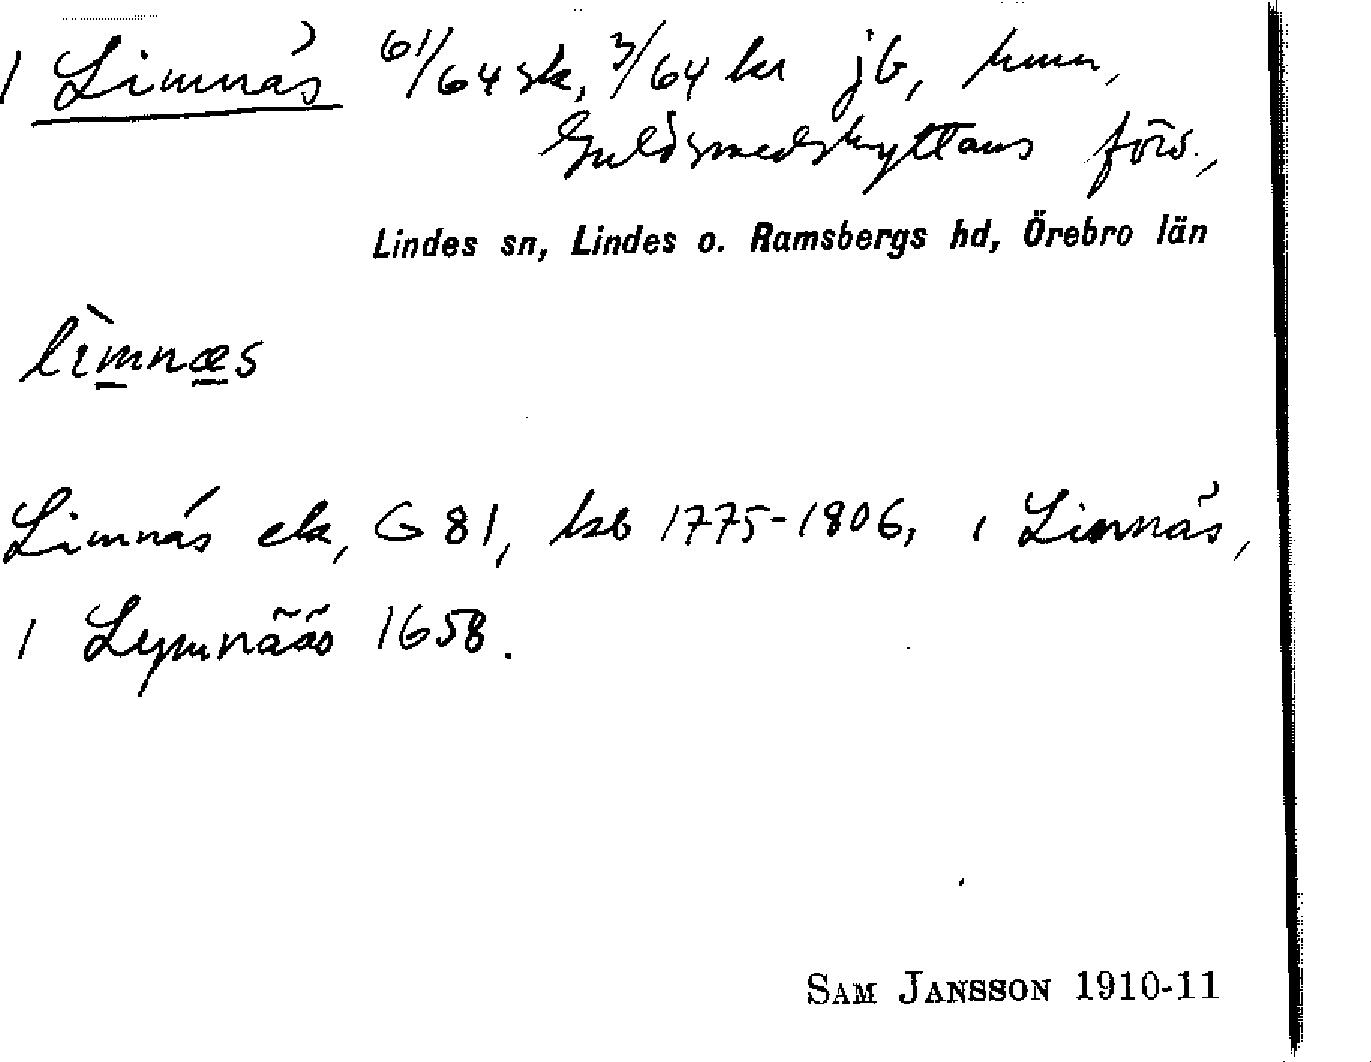 1 Limnäs 61/64 sk, 3/64 kr jb, hmn,
Guldsmedshyttans förs.,
Lindes sn, Lindes o. Ramsbergs hd, Örebro län
lìmnæs
Limnäs ek, G 81, ksb 1775-1806, 1 Limnäs,
1 Lymnääs 1658.
SAM JANSSON 1910-11